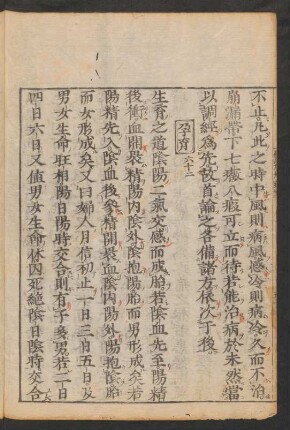 不止凡此之時中風則病風感冷則病冷久而不治
崩漏帶下七癥八瘕可立而待若能治病於未然當
以調經為先故首論之各備諸方依次于後
孕育 六十二
生育之道陰陽二氣交感而成胎若陰血先至陽精
後衝血開裹精陽内陰外陰抱陽胎而男形成矣若
陽精先入陰血後參精開裹血陰内陽外陽抱陰胎
而女形成矣又曰婦人月信初止一日三日五日及
男女生命旺相陽日陽時交合則有子多男若二日
四日六日又值男女生命休囚死絶陰日陰時交合